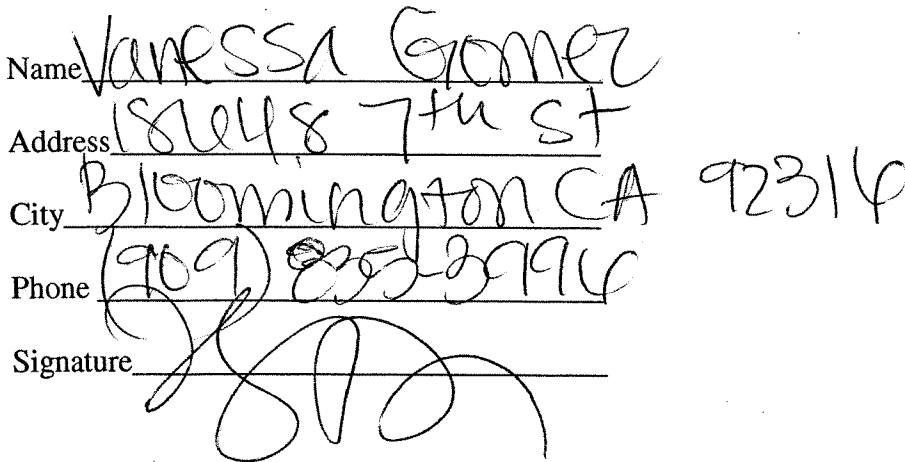 Name Vanessa Gomez
Address 18648 7th St
City Bloomington CA 92316
Phone (909) 835-3996
Signature